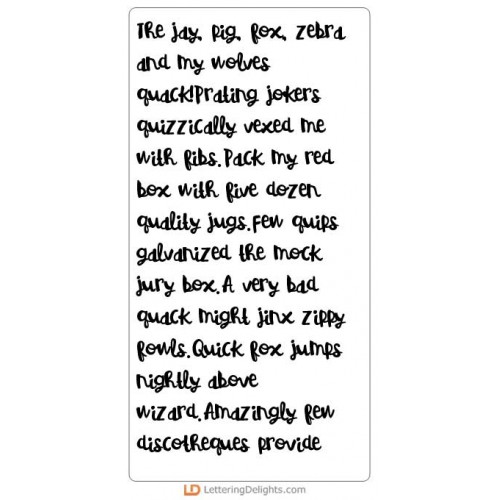 The jay, pig, fox, zebra
and my wolves
quack!Prating jokers
quizzically vexed me
with fibs.Pack my red
box with five dozen
quality jugs.Few quips
galvanized the mock
jury box.A very bad
quack might jinx zippy
fowls.Quick fox jumps
nightly above
wizard.Amazingly few
discotheques provide
LD LetteringDelights.com